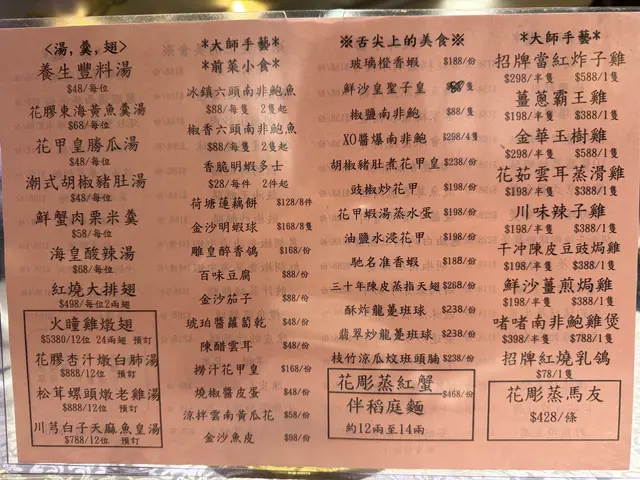 <湯,羹,翅>
養生豐料湯
$48/每位
花膠東海黃魚羹湯
$68/每位
花甲皇勝瓜湯
$48/每位
潮式胡椒豬肚湯
$48/每位
鮮蟹肉栗米羹
$58/每位
海皇酸辣湯
$68/每位
紅燒大排翅
$498/每位2兩翅
火瞳雞燉翅
$5380/12位 24兩翅 預訂
花膠杏汁燉白肺湯
$888/12位 預訂
松茸螺頭燉老雞湯
$888/12位 預訂
川芎白子天麻魚皇湯
$788/12位 預訂
*大師手藝*
*前菜小食*
冰鎮六頭南非鮑魚
$88/每隻 2隻起
椒香六頭南非鮑魚
$88/每隻 2隻起
香脆明蝦多士
$28/每件 2件起
荷塘蓮藕餅 $128/8件
金沙明蝦球 $168/8隻
雕皇醉香鴿 $168/份
百味豆腐 $88/份
金沙茄子 $88/份
琥珀醬蘿蔔乾 $48/份
陳醋雲耳 $48/份
撈汁花甲皇 $168/份
燒椒醬皮蛋 $48/份
涼拌雲南黃瓜花 $58/份
金沙魚皮 $98/份
※舌尖上的美食※
玻璃橙香蝦 $188/份
鮮沙皇聖子皇 /隻
椒鹽南非鮑 $88/隻
XO醬爆南非鮑 $298/4隻
胡椒豬肚煮花甲皇 $238/份
豉椒炒花甲 $198/份
花甲蝦湯蒸水蛋 $198/份
油鹽水浸花甲 $198/份
馳名准香蝦 $188/份
三十年陳皮蒸指天翅 $268/份
酥炸龍躉班球 $238/份
翡翠炒龍躉班球 $238/份
枝竹涼瓜炆班頭腩 $268/份
花彫蒸紅蟹
伴稻庭麵 $468/份
約12兩至14兩
*大師手藝*
招牌當紅炸子雞
$298/半隻 $588/1隻
薑蔥霸王雞
$198/半隻 $388/1隻
金華玉樹雞
$298/半隻 $588/1隻
花茹雲耳蒸滑雞
$198/半隻 $388/1隻
川味辣子雞
$198/半隻 $388/1隻
干冲陳皮豆豉焗雞
$198/半隻 $388/1隻
鮮沙薑煎焗雞
$198/半隻 $388/1隻
啫啫南非鮑雞煲
$398/半隻 $788/1隻
招牌紅燒乳鴿
$78/1隻
花彫蒸馬友
$428/條